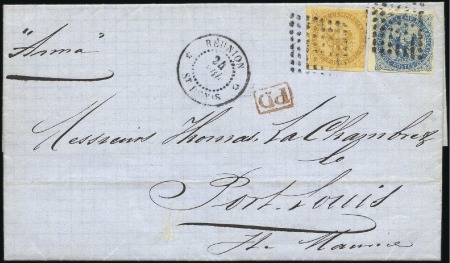 "Arma"
RÉUNION
24
ST DENIS
PD
Messieurs Thomas, La Chambre
Port-Louis
Ile Maurice